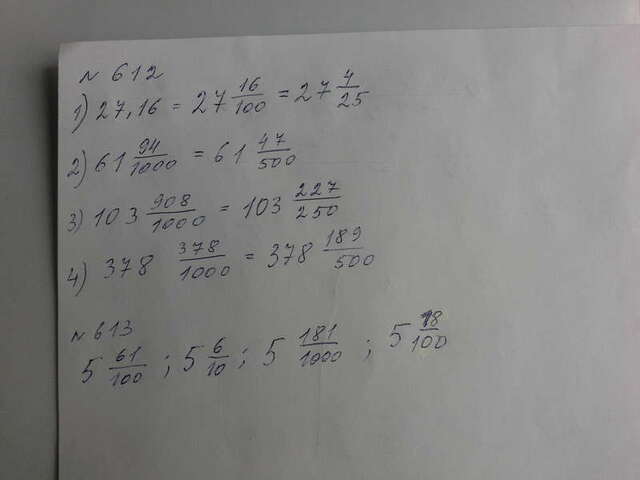 № 612
1) 27,16 = 27 16/100 = 27 4/25
2) 61 94/1000 = 61 47/500
3) 103 908/1000 = 103 227/250
4) 378 378/1000 = 378 189/500
№ 613
5 61/100 ; 5 6/10 ; 5 181/1000 ; 5 18/100